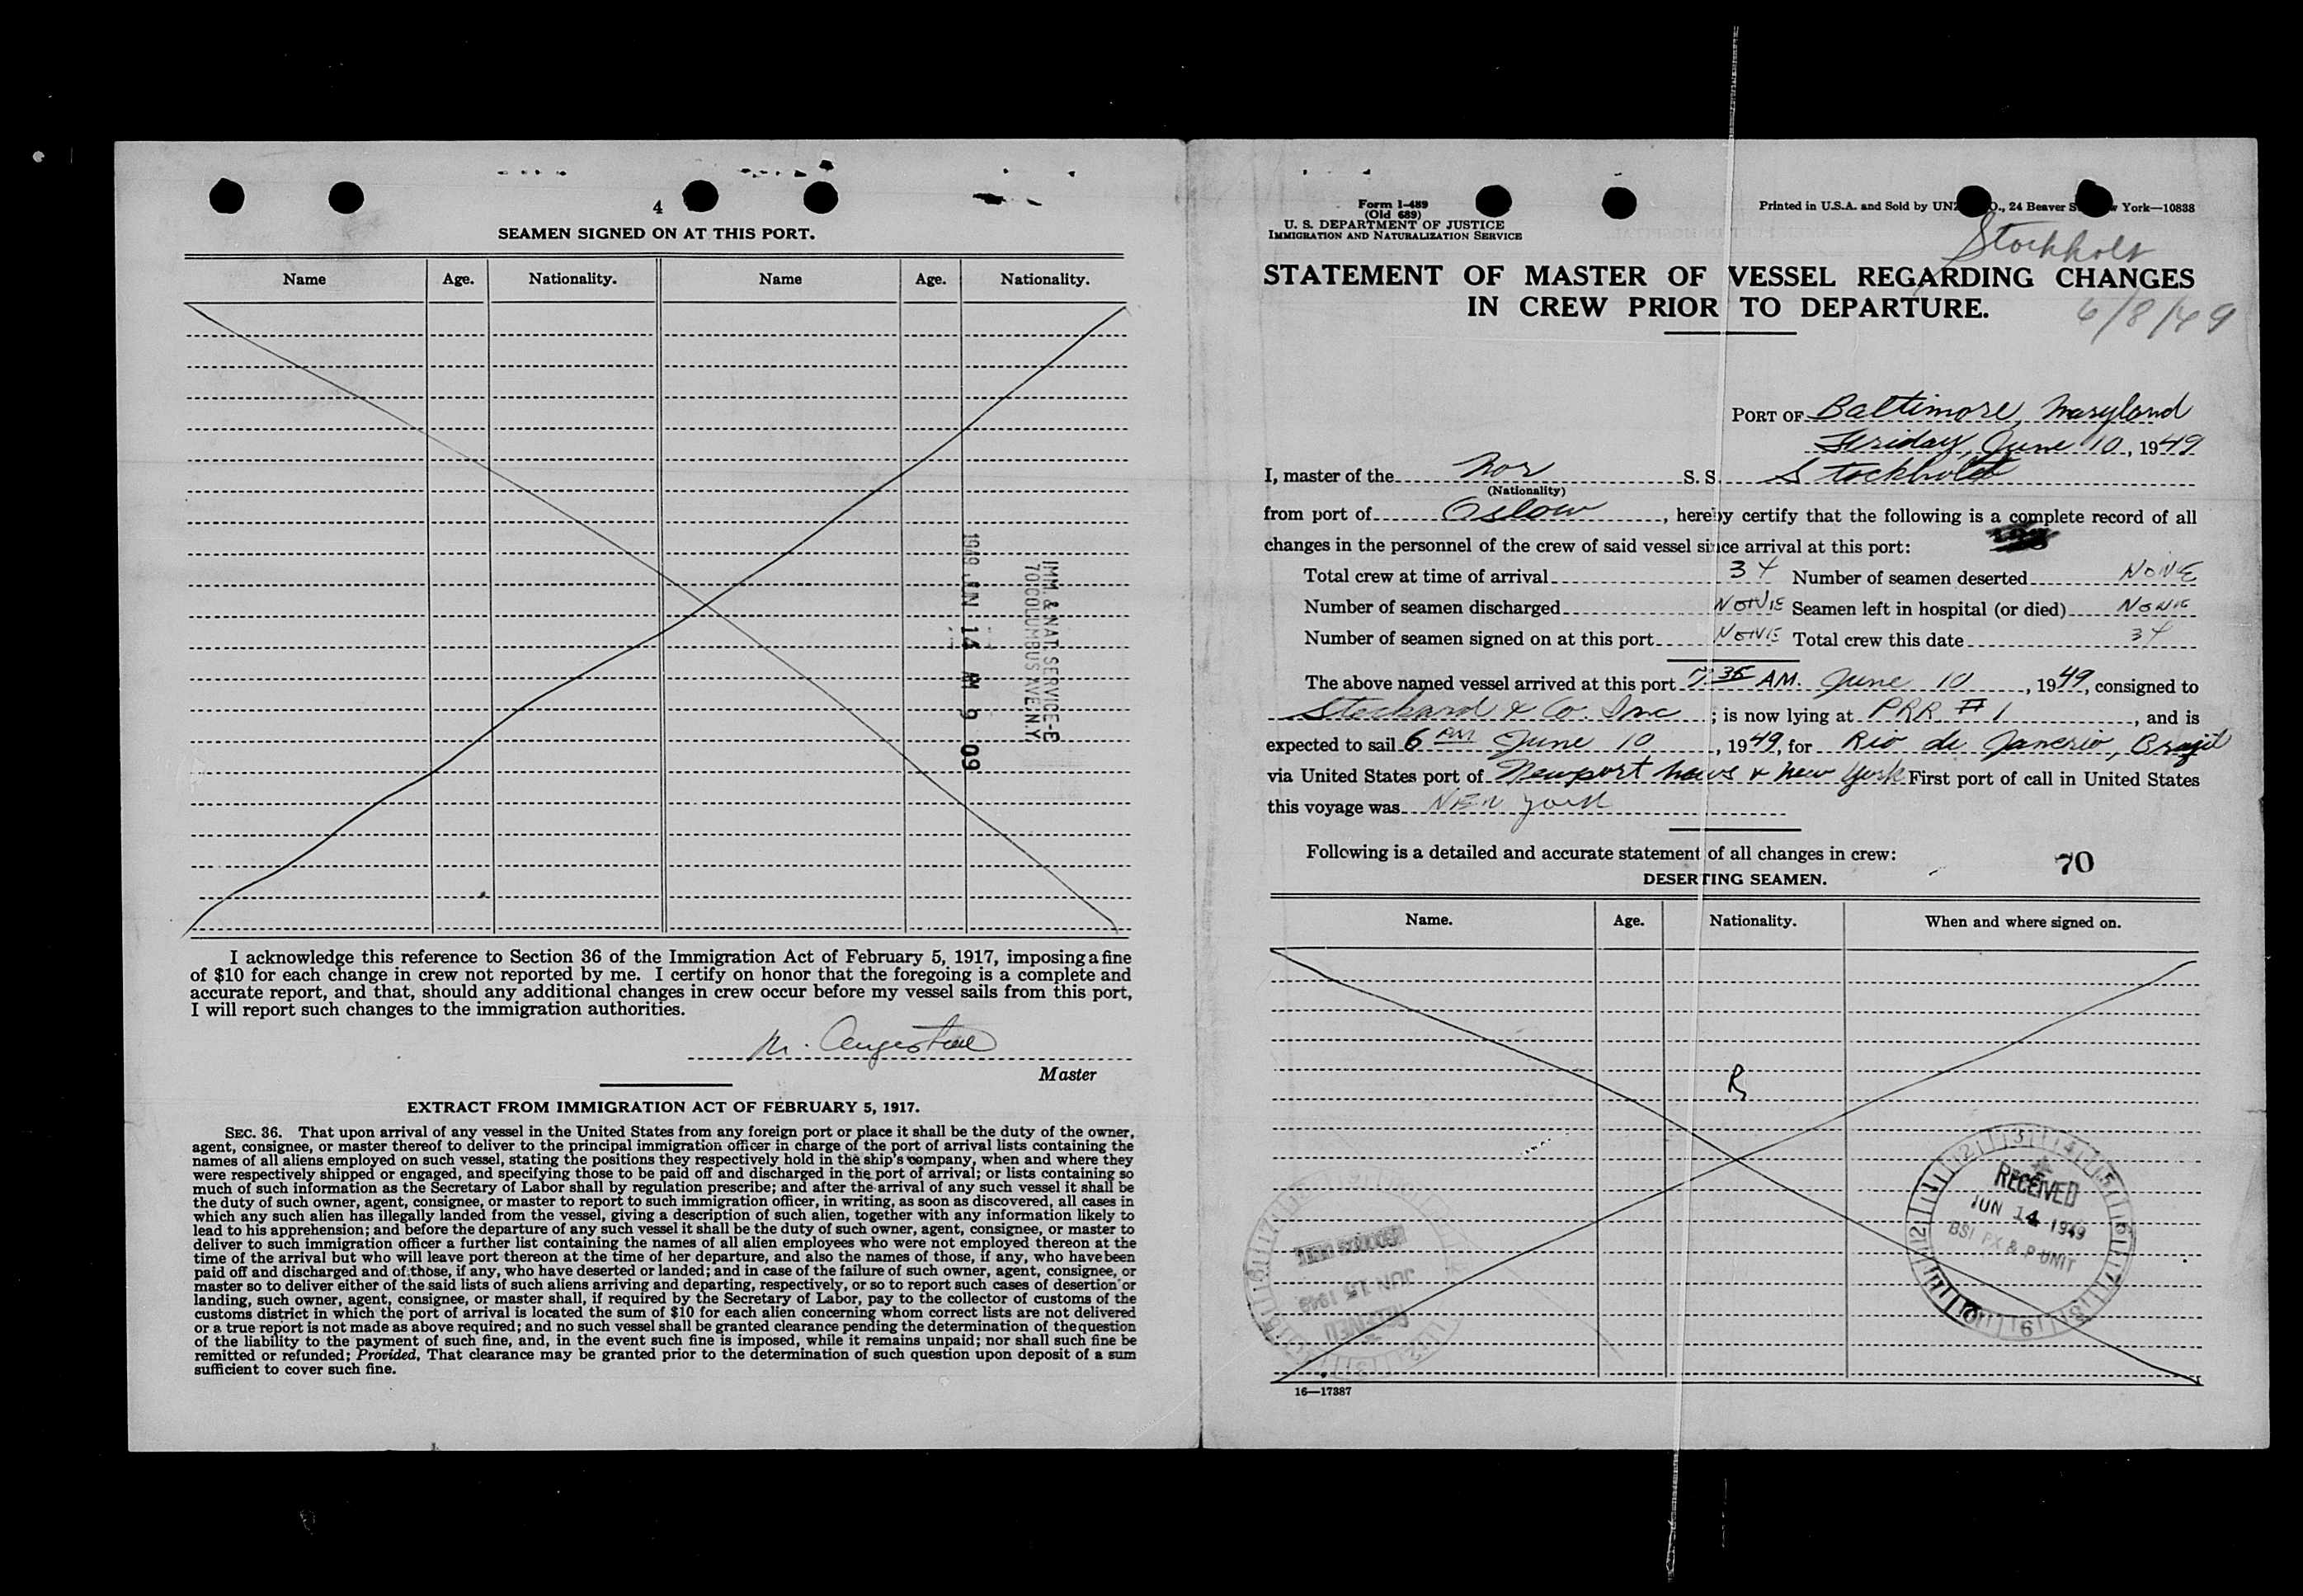 4
SEAMEN SIGNED ON AT THIS PORT.
Name Age. Nationality. Name Age. Nationality.
IMM. & NAT. SERVICE-E
70 COLUMBUS AVE. N.Y.
1949 JUN 14 AM 9 09
I acknowledge this reference to Section 36 of the Immigration Act of February 5, 1917, imposing a fine
of $10 for each change in crew not reported by me. I certify on honor that the foregoing is a complete and
accurate report, and that, should any additional changes in crew occur before my vessel sails from this port,
I will report such changes to the immigration authorities.
Master
EXTRACT FROM IMMIGRATION ACT OF FEBRUARY 5, 1917.
SEC. 36. That upon arrival of any vessel in the United States from any foreign port or place it shall be the duty of the owner,
agent, consignee, or master thereof to deliver to the principal immigration officer in charge of the port of arrival lists containing the
names of all aliens employed on such vessel, stating the positions they respectively hold in the ship's company, when and where they
were respectively shipped or engaged, and specifying those to be paid off and discharged in the port of arrival; or lists containing so
much of such information as the Secretary of Labor shall by regulation prescribe; and after the arrival of any such vessel it shall be
the duty of such owner, agent, consignee, or master to report to such immigration officer, in writing, as soon as discovered, all cases in
which any such alien has illegally landed from the vessel, giving a description of such alien, together with any information likely to
lead to his apprehension; and before the departure of any such vessel it shall be the duty of such owner, agent, consignee, or master to
deliver to such immigration officer a further list containing the names of all alien employees who were not employed thereon at the
time of the arrival but who will leave port thereon at the time of her departure, and also the names of those, if any, who have been
paid off and discharged and of those, if any, who have deserted or landed; and in case of the failure of such owner, agent, consignee, or
master so to deliver either of the said lists of such aliens arriving and departing, respectively, or so to report such cases of desertion or
landing, such owner, agent, consignee, or master shall, if required by the Secretary of Labor, pay to the collector of customs of the
customs district in which the port of arrival is located the sum of $10 for each alien concerning whom correct lists are not delivered
or a true report is not made as above required; and no such vessel shall be granted clearance pending the determination of the question
of the liability to the payment of such fine, and, in the event such fine is imposed, while it remains unpaid; nor shall such fine be
remitted or refunded; Provided, That clearance may be granted prior to the determination of such question upon deposit of a sum
sufficient to cover such fine.
Form I-489
(Old 689)
U. S. DEPARTMENT OF JUSTICE
IMMIGRATION AND NATURALIZATION SERVICE
Printed in U.S.A. and Sold by UNZ O., 24 Beaver S York—10838
STATEMENT OF MASTER OF VESSEL REGARDING CHANGES
IN CREW PRIOR TO DEPARTURE.
6/8/49
PORT OF Baltimore, Maryland
Friday, June 10, 1949
I, master of the Nor S. S. Stockholt
(Nationality)
from port of Oslow, hereby certify that the following is a complete record of all
changes in the personnel of the crew of said vessel since arrival at this port:
Total crew at time of arrival 34 Number of seamen deserted NONE
Number of seamen discharged NONE Seamen left in hospital (or died) NONE
Number of seamen signed on at this port NONE Total crew this date 34
The above named vessel arrived at this port 7 35 AM. June 10, 1949, consigned to
Stockard & Co. Inc; is now lying at PRR # 1, and is
expected to sail 6 PM June 10, 1949, for Rio de Janerio, Brazil
via United States port of Newport News & New York First port of call in United States
this voyage was New York
Following is a detailed and accurate statement of all changes in crew:
70
DESERTING SEAMEN.
Name. Age. Nationality. When and where signed on.
R
RECEIVED
JUN 14 1949
BSI PX & P UNIT
JUN 15 1949
RECEIVED
16—17387